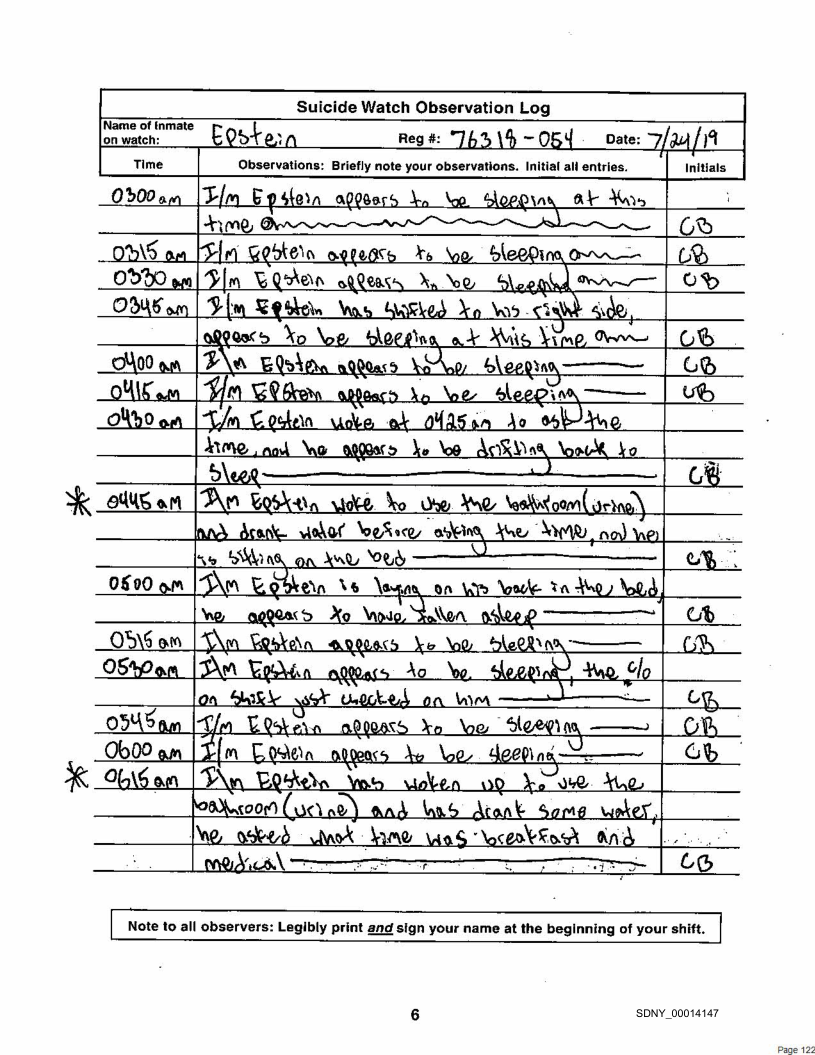 Suicide Watch Observation Log
Name of Inmate on watch: Epstein Reg #: 76318-054 Date: 7/24/19
Time Observations: Briefly note your observations. Initial all entries. Initials
0300 am I/m Epstein appears to be sleeping at this
time CB
0315 am I/m Epstein appears to be sleeping CB
0330 am I/m Epstein appears to be sleeping CB
0345 am I/m Epstein has shifted to his right side,
appears to be sleeping at this time CB
0400 am I/m Epstein appears to be sleeping CB
0415 am I/m Epstein appears to be sleeping CB
0430 am I/m Epstein woke at 0425 am to ask the
time, now he appears to be drifting back to
sleep CB
* 0445 am I/m Epstein woke to use the bathroom (urine)
and drank water before asking the time, now he
is sitting on the bed CB
0500 am I/m Epstein is laying on his back in the bed,
he appears to have fallen asleep CB
0515 am I/m Epstein appears to be sleeping CB
0530 am I/m Epstein appears to be sleeping, the c/o
on shift just checked on him CB
0545 am I/m Epstein appears to be sleeping CB
0600 am I/m Epstein appears to be sleeping CB
* 0615 am I/m Epstein has woken up to use the
bathroom (urine) and has drank some water,
he asked what time was breakfast and
medical CB
Note to all observers: Legibly print and sign your name at the beginning of your shift.
6 SDNY_00014147
Page 122